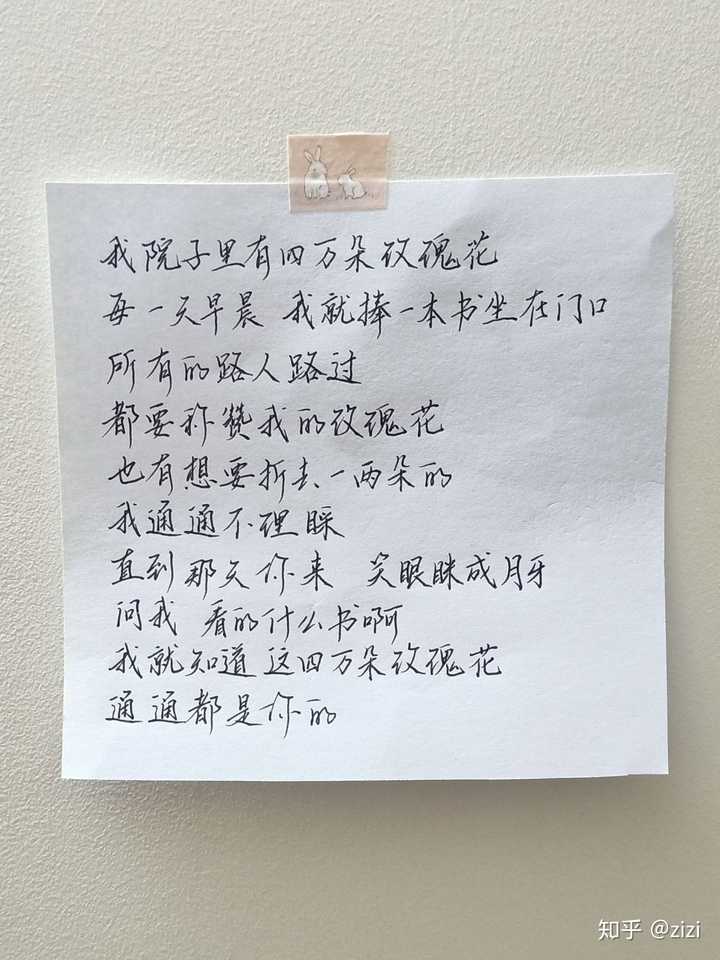 我院子里有四万朵玫瑰花
每一天早晨 我就捧一本书坐在门口
所有的路人路过
都要称赞我的玫瑰花
也有想要折去一两朵的
我通通不理睬
直到那天你来 笑眼眯成月牙
问我 看的什么书啊
我就知道 这四万朵玫瑰花
通通都是你的
知乎 @zizi